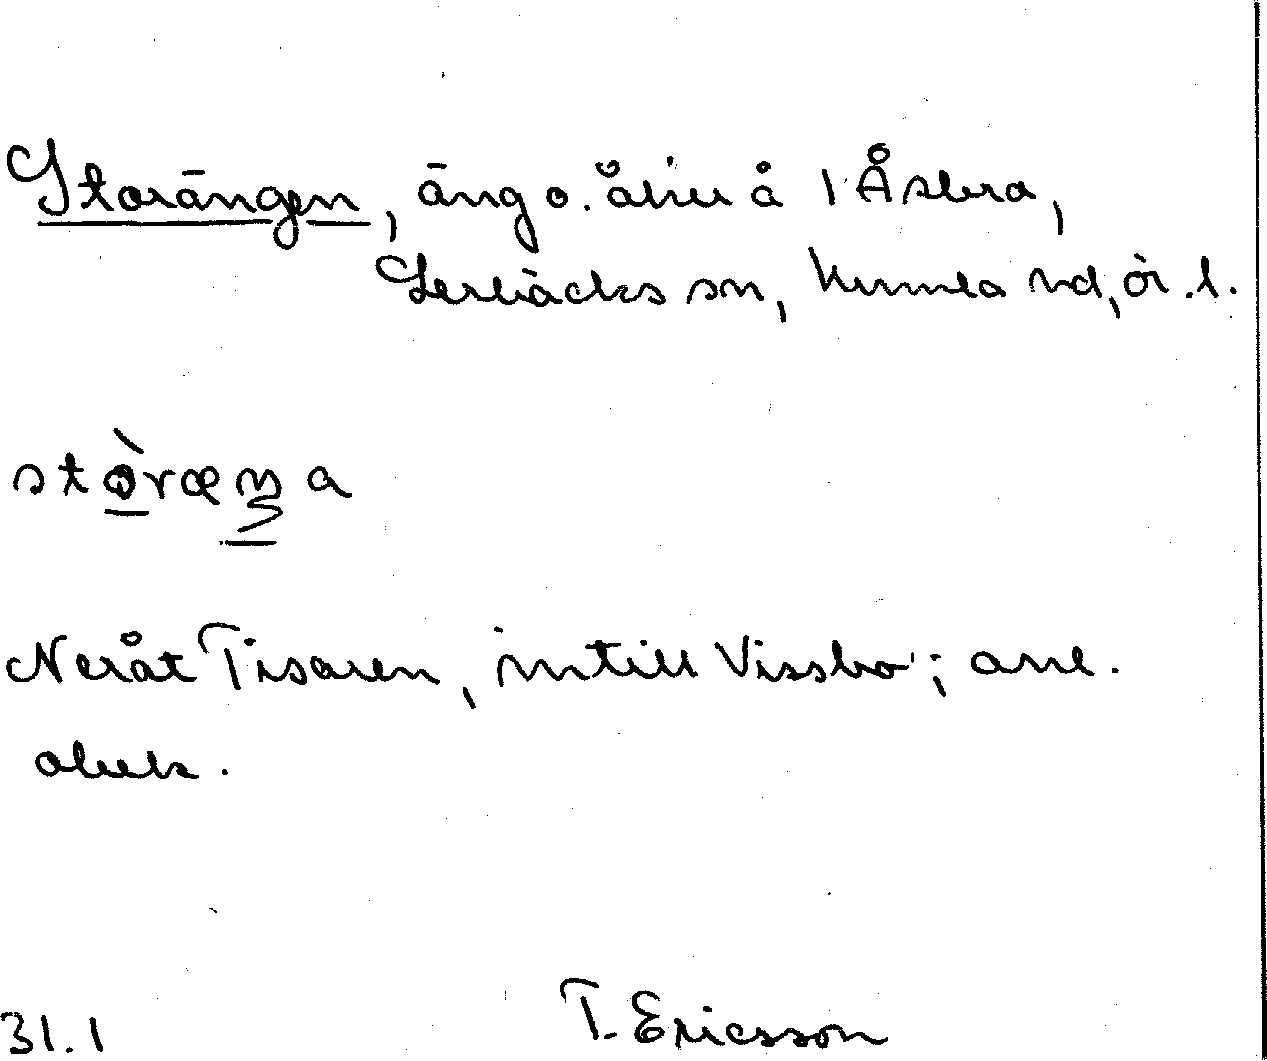 Storängen, äng o. åker å 1 Åsbro,
Lerbäcks sn, Kumla hd, Ör. l.
Neråt Tisaren, intill Vissbo; anl.
obek.
31.1 T. Ericsson